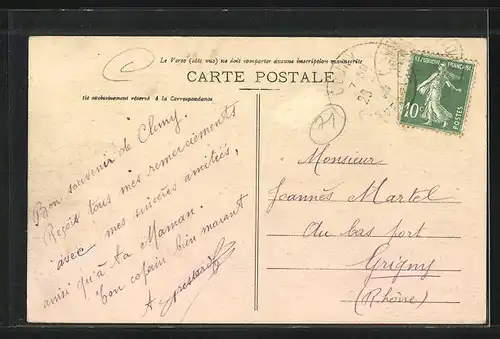 Le Verso (côté vue) ne doit comporter aucune inscription manuscrite
CARTE POSTALE
Exclusivement réservé à la Correspondance
Bon souvenir de Cluny.
Reçois tous mes remerciements
avec mes sincères amitiés,
ainsi qu'à ta Maman.
Ton copain bien
A
71
RÉPUBLIQUE FRANÇAISE
10c
POSTES
Monsieur
Joannès Martel
Au bas port
Grigny
(Rhône)